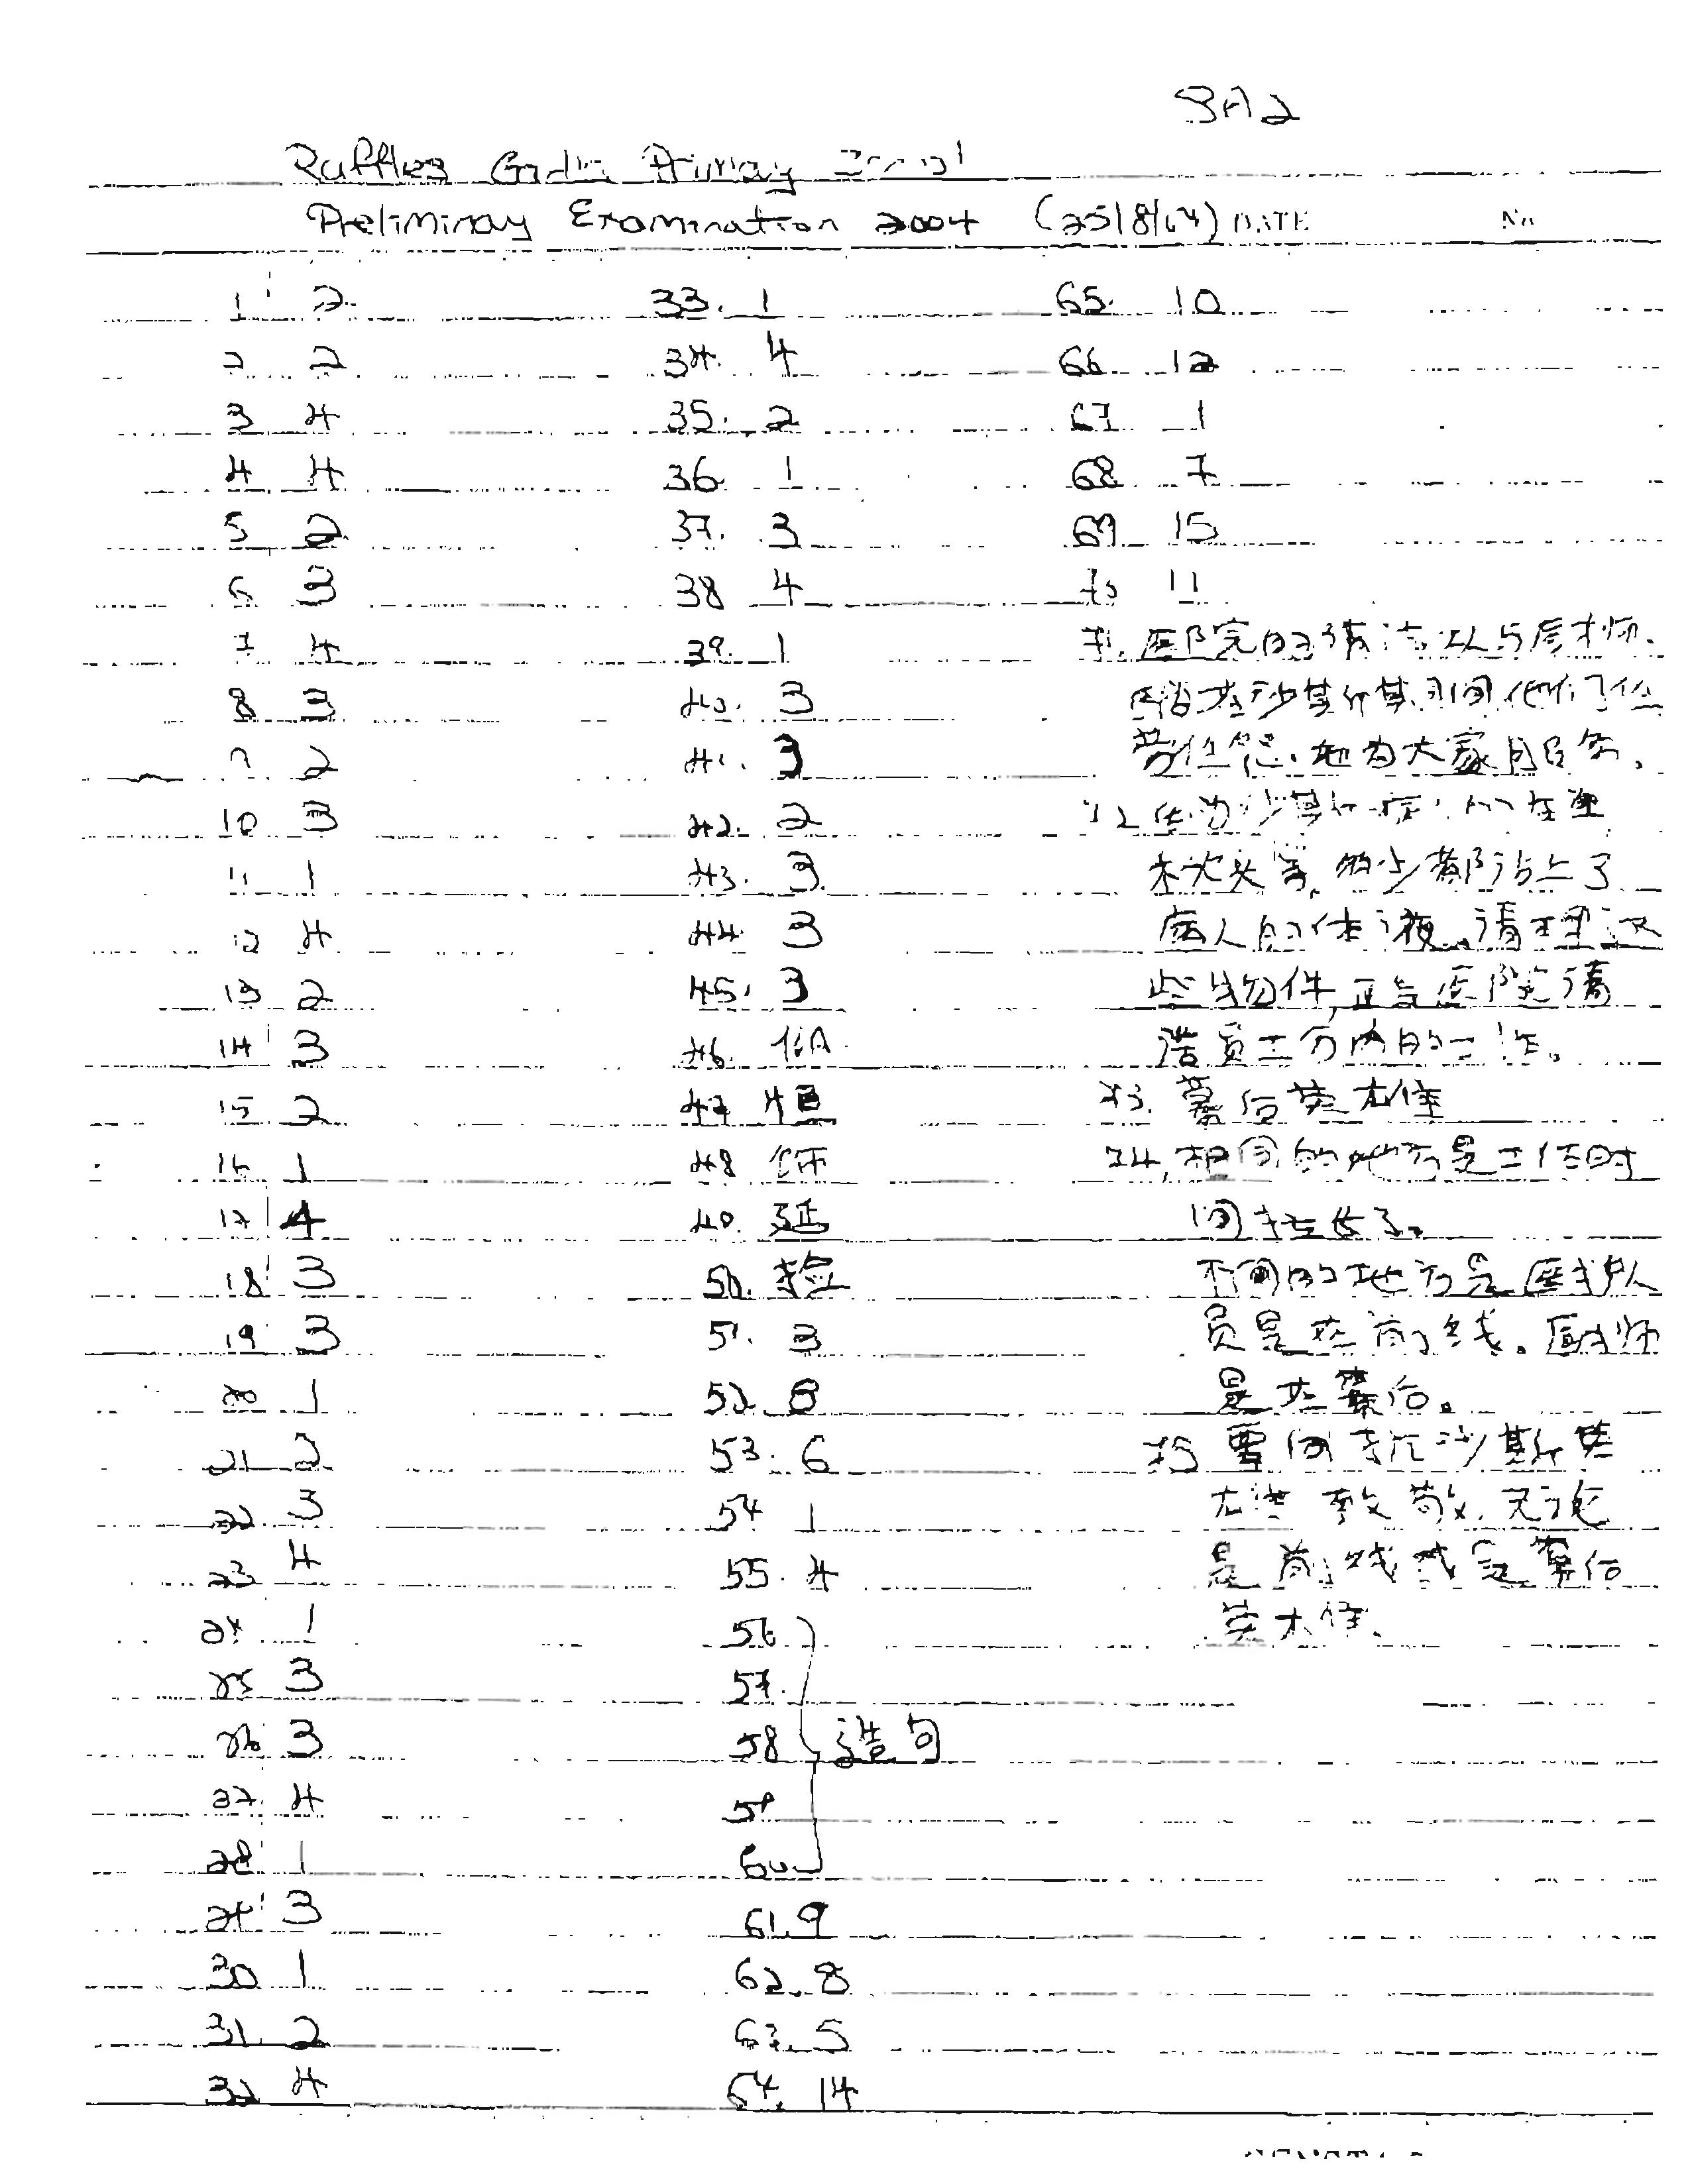 SA2
Raffles Girls' Primary School
Preliminary Examination 2004 (25/8/04) DATE No
1 2
2 2
3 4
4 4
5 2
6 3
7 4
8 3
9 2
10 3
11 1
12 4
13 2
14 3
15 2
16 1
17 4
18 3
19 3
20 1
21 2
22 3
23 4
24 1
25 3
26 3
27. 4
28 1
29 3
30 1
31. 2
32 4
33. 1
34. 4
35. 2
36. 1
37. 3
38 4
39. 1
40. 3
41. 3
42. 2
43. 3
44. 3
45. 3
46.
47.
48
49. 延
50. 捡
51. 3
52. 8
53. 6
54 1
55. 4
56
57.
58 造句
59
60
61. 9
62. 8
63. 5
64. 14
65. 10
66 12
67 1
68 7
69 15
70 11
71. 医院的清洁工与厨师.
在沙斯期间他们任
劳任怨.地为大家服务.
72
都沾上了
病人的体液。清理这
些物件,正是医院清
洁员工分内的工作。
73. 幕后英雄
74. 相同的地方是工作时
间拉长了。
不同的地方是医护人
员是在前线。厨师
是在幕后。
75 要向抗沙斯英
雄致敬.无论
是前线或是幕后
英雄.